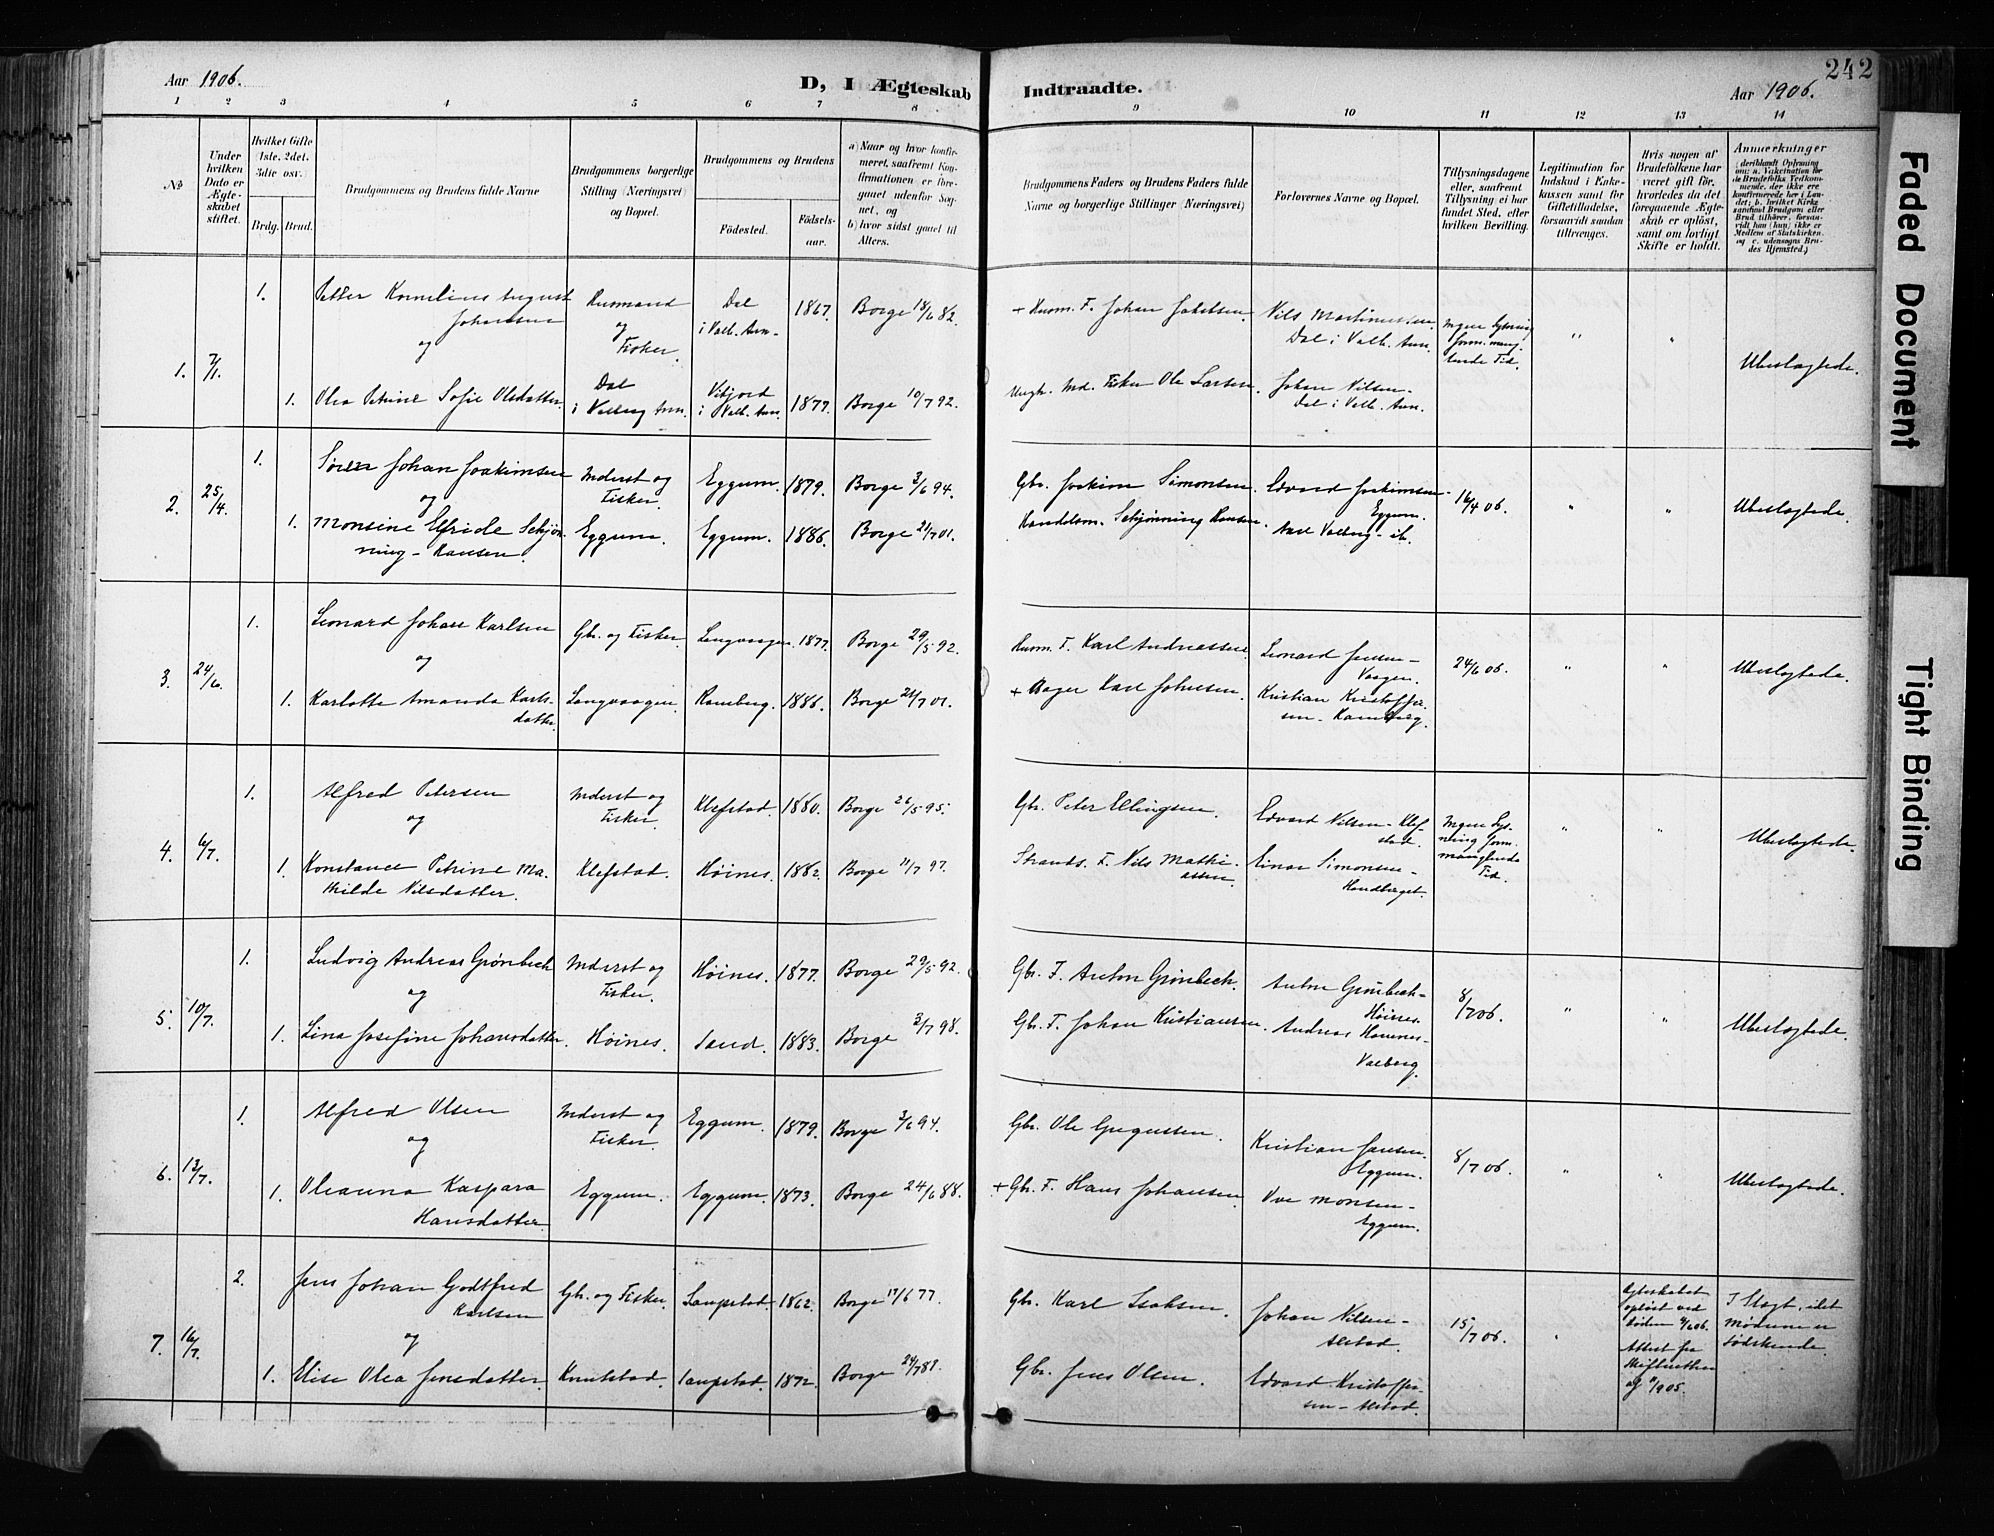 Aar 1906.
D, I Ægteskab
Indtraadte.
Aar 1906.
242
1 2 3 4 5 6 7 8 9 10 11 12 13 14
No
Under
hvilken
Dato er
Ægte-
skabet
stiftet.
Hvilket Gifte
(1ste, 2det,
3die osv.)
Brdg. Brud.
Brudgommens og Brudens fulde Navne
Brudgommens borgerlige
Stilling (Næringsvei)
og Bopæl.
Brudgommens og Brudens
Fødested.
Fødsels-
aar.
a) Naar og hvor konfir-
meret, saafremt Kon-
firmationen er fore-
gaaet udenfor Sog-
net, og
b) hvor sidst gaaet til
Alters.
Brudgommens Faders og Brudens Faders fulde
Navne og borgerlige Stillinger (Næringsvei)
Forlovernes Navne og Bopæl.
Tillysningsdagene
eller, saafremt
Tillysning ei har
fundet Sted, efter
hvilken Bevilling.
Legitimation for
Indskud i Enke-
kassen samt for
Giftetilladelse,
forsaavidt saadan
tiltrænges.
Hvis nogen af
Brudefolkene har
været gift før,
hvorledes da det
foregaaende Ægte-
skab er opløst,
samt om lovligt
Skifte er holdt.
Anmerkninger
(deriblandt Oplysning
om: a. Vakcination for
de Brudefolks Vedkom-
mende, der ikke ere
konfirmerede her i Lan-
det; b. hvilket Kirke-
samfund Brudgom eller
Brud tilhører, forsaa-
vidt han (hun) ikke er
Medlem af Statskirken,
og c. udensogns Bru-
des Hjemsted.)
1. 7/1. 1. Petter Kornelius August
Johansen
og
Husmand
og
Fisker.
Dal
i Valb. Ann.
1867. Borge 18/6 82.
+ Husm. F. Johan Jakobsen.
Nils Martinussen
Dal i Valb. Ann.
Ingen Lysning
form. mang-
lende Tid.
" "
Ubeslægtede.
1. Olea Petrine Sofie Olsdatter.
Dal
i Valberg Ann.
i Valb. Ann.
1877. Borge 10/7 92.
Ungk. Md. Fisker Ole Larsen.
Johan Nilsen-
Dal i Valb. Ann.
2. 25/4. 1. Sören Johan Joakimsen
og
Inderst og
Fisker
Eggum. 1879. Borge 3/6 94.
Gbr. Joakim Simonsen.
Edvard Joakimsen-
Eggum.
16/4 06. " "
Ubeslægtede.
1. Monsine Elfride Schjön-
ning-Hansen
Eggum. Eggum. 1886. Borge 21/7 01.
Handelsm. Schjönning Hansen.
Axel Valberg - ib.
3. 24/6. 1. Leonard Johan Karlsen
og
Gbr. og Fisker. Langvaagen 1877. Borge 29/5 92.
Husm. F. Karl Andreassen.
Leonard Jensen-
Vaagen.
24/6 06. " "
Ubeslægtede.
1. Karlotte Amanda Karls-
datter.
Langvaagen. Ramberg. 1886. Borge 21/7 01.
+ Bager Karl Johnsen.
Kristian Kristoffer-
sen - Ramberg.
4. 6/7. 1. Alfred Petersen
og
Inderst og
Fisker.
Klefstad. 1880. Borge 26/5 95.
Gbr. Peter Ellingsen.
Edvard Nilsen - Klef-
stad.
Ingen Lys-
ning form.
manglende
Tid.
" "
Ubeslægtede.
1. Konstance Petrine Ma-
thilde Nilsdatter.
Klefstad. Höines. 1882. Borge 11/7 97.
Strands. F. Nils Mathi-
assen
Einar Simonsen-
Handberget.
5. 10/7. 1. Ludvig Andreas Grönbech
og
Inderst og
Fisker.
Höines. 1877. Borge 29/5 92.
Gbr. F. Anton Grönbech.
Anton Grönbech-
Höines.
8/7 06. " "
Ubeslægtede.
1. Lina Josefine Johansdatter.
Höines. Sand. 1883. Borge 3/7 98.
Gbr. F. Johan Kristiansen.
Andreas Hannes-
Valberg.
6. 13/7. 1. Alfred Olsen
og
Inderst og
Fisker.
Eggum. 1879. Borge 3/6 94.
Gbr. Ole Gregussen.
Kristian Jansen.
Eggum.
8/7 06. " "
Ubeslægtede.
1. Oleanna Kaspara
Hansdatter.
Eggum. Eggum. 1873. Borge 24/6 88.
+ Gbr. F. Hans Johansen.
Monsen-
Eggum.
7. 16/7. 2. Jens Johan Godtfred
Karlsen
og
Gbr. og Fisker. Saupstad. 1862. Borge 17/6 77.
Gbr. Karl Isaksen.
Johan Nilsen-
Alstad.
15/7 06. "
Ægteskabet
opløst ved
Døden
Attest fra
Skifteretten
af
I Slægt, idet
Mødrene er
Södskende.
1. Elise Olea Jensdatter.
Knutstad. Saupstad. 1872. Borge 24/7 88.
Gbr. Jens Olsen.
Edvard Kristoffer-
sen - Alstad.
Faded Document
Tight Binding